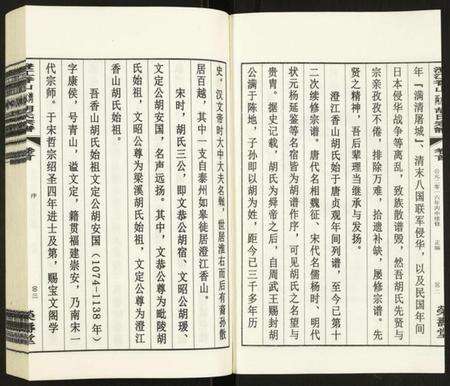 年「满清屠城」，清末八国联军侵华，以及民国年间
日本侵华战争等离乱，致族散谱毁，然吾胡氏先贤与
宗亲孜孜不倦，排除万难，拾遗补缺，屡修宗谱。先
贤之精神，吾后辈理当继承与发扬。
澄江香山胡氏始于唐贞观年间列谱，至今已第十
二次续修宗谱。唐代名相魏征、宋代名儒杨时、明代
状元杨延鉴等名宿皆为胡谱作序，可见胡氏之名望与
贵胄。据史记载，胡氏为舜帝之后，自周武王赐封胡
公满于陈地，子孙即以胡为姓，距今已三千多年历
史，汉文帝时大中大夫名
世居淮右而后有裔孙散
居百越，其中一支自泰州如皋徒居澄江香山。
宋时，胡氏三公，即文恭公胡宿、文昭公胡瑗、
文定公胡安国，名声远扬。其中，文恭公为毗陵胡
氏始祖，文昭公尊为梁溪胡氏始祖，文定公尊为澄江
香山胡氏始祖。
吾香山胡氏始祖文定公胡安国（1074-1138年）
字康侯，号青山，谥文定，籍贯福建崇安，乃南宋一
代宗师。于宋哲宗绍圣四年进士及第，赐宝文阁学
序